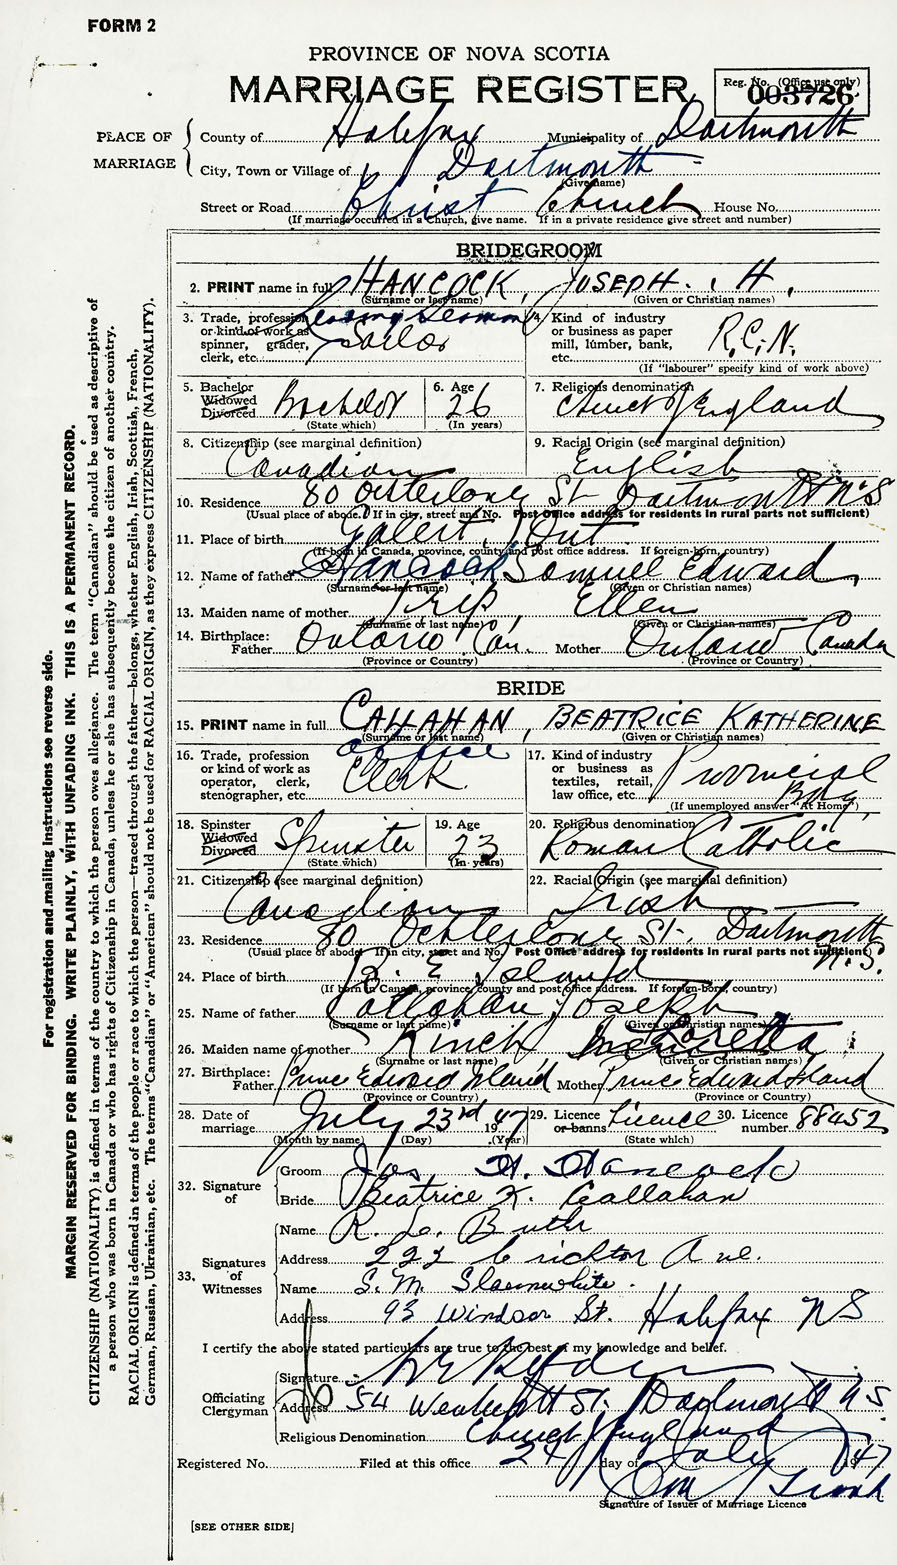 FORM 2
PROVINCE OF NOVA SCOTIA
MARRIAGE REGISTER
Reg. No. (Office use only)
003726
PLACE OF MARRIAGE
County of Halifax Municipality of Dartmouth
City, Town or Village of Dartmouth
(Give name)
Street or Road Christ Church House No.
(If marriage occurred in a Church, give name. If in a private residence give street and number)
BRIDEGROOM
2. PRINT name in full HANCOCK, JOSEPH. H.
(Surname or last name) (Given or Christian names)
3. Trade, profession or kind of work as spinner, grader, clerk, etc. Seaman Sailor
4. Kind of industry or business as paper mill, lumber, bank, etc. R.C.N.
(If "labourer" specify kind of work above)
5. Bachelor Widowed Divorced Bachelor
(State which)
6. Age 26
(In years)
7. Religious denomination Church of England
8. Citizenship (see marginal definition) Canadian
9. Racial Origin (see marginal definition) English
10. Residence 80 Ochterloney St Dartmouth N.S
(Usual place of abode. If in city, street and No. Post Office address for residents in rural parts not sufficient)
11. Place of birth Ont
(If born in Canada, province, county and post office address. If foreign-born, country)
12. Name of father Hancock Samuel Edward
(Surname or last name) (Given or Christian names)
13. Maiden name of mother Trip, Ellen
(Surname or last name) (Given or Christian names)
14. Birthplace: Father Ontario Can. Mother Ontario Canada
(Province or Country) (Province or Country)
BRIDE
15. PRINT name in full CALLAHAN, BEATRICE KATHERINE
(Surname or last name) (Given or Christian names)
16. Trade, profession or kind of work as operator, clerk, stenographer, etc. office Clerk
17. Kind of industry or business as textiles, retail, law office, etc. Provincial Bldg
(If unemployed answer "At Home")
18. Spinster Widowed Divorced Spinster
(State which)
19. Age 23
(In years)
20. Religious denomination Roman Catholic
21. Citizenship (see marginal definition) Canadian
22. Racial Origin (see marginal definition) Irish
23. Residence 80 Ochterloney St. Dartmouth N.S.
(Usual place of abode If in city, street and No. Post Office address for residents in rural parts not sufficient)
24. Place of birth P. E Island
(If born in Canada, province, county and post office address. If foreign-born, country)
25. Name of father Callahan, Joseph
(Surname or last name) (Given or Christian names)
26. Maiden name of mother Kinch Loretta
(Surname or last name) (Given or Christian names)
27. Birthplace: Father Prince Edward Island Mother Prince Edward Island
(Province or Country) (Province or Country)
28. Date of marriage July 23rd 1947
(Month by name) (Day) (Year)
29. Licence or banns Licence
(State which)
30. Licence number 88452
32. Signature of
Groom Jos. H. Hancock
Bride Beatrice K. Callahan
33. Signatures of Witnesses
Name R. L. Butler
Address 222 Crichton Ave.
Name S. M. Slaunwhite.
Address 93 Windsor St. Halifax NS
I certify the above stated particulars are true to the best of my knowledge and belief.
Officiating Clergyman
Signature
Address 54 Wentworth St. Dartmouth N S
Religious Denomination Church of England
Registered No. Filed at this office 24 day of July 1947
Signature of Issuer of Marriage Licence
[SEE OTHER SIDE]
For registration and mailing instructions see reverse side.
MARGIN RESERVED FOR BINDING. WRITE PLAINLY, WITH UNFADING INK. THIS IS A PERMANENT RECORD.
CITIZENSHIP (NATIONALITY) is defined in terms of the country to which the person owes allegiance. The term "Canadian" should be used as descriptive of
a person who was born in Canada or who has rights of Citizenship in Canada, unless he or she has subsequently become the citizen of another country.
RACIAL ORIGIN is defined in terms of the people or race to which the person—traced through the father—belongs, whether English, Irish, Scottish, French,
German, Russian, Ukrainian, etc. The terms "Canadian" or "American" should not be used for RACIAL ORIGIN, as they express CITIZENSHIP (NATIONALITY).